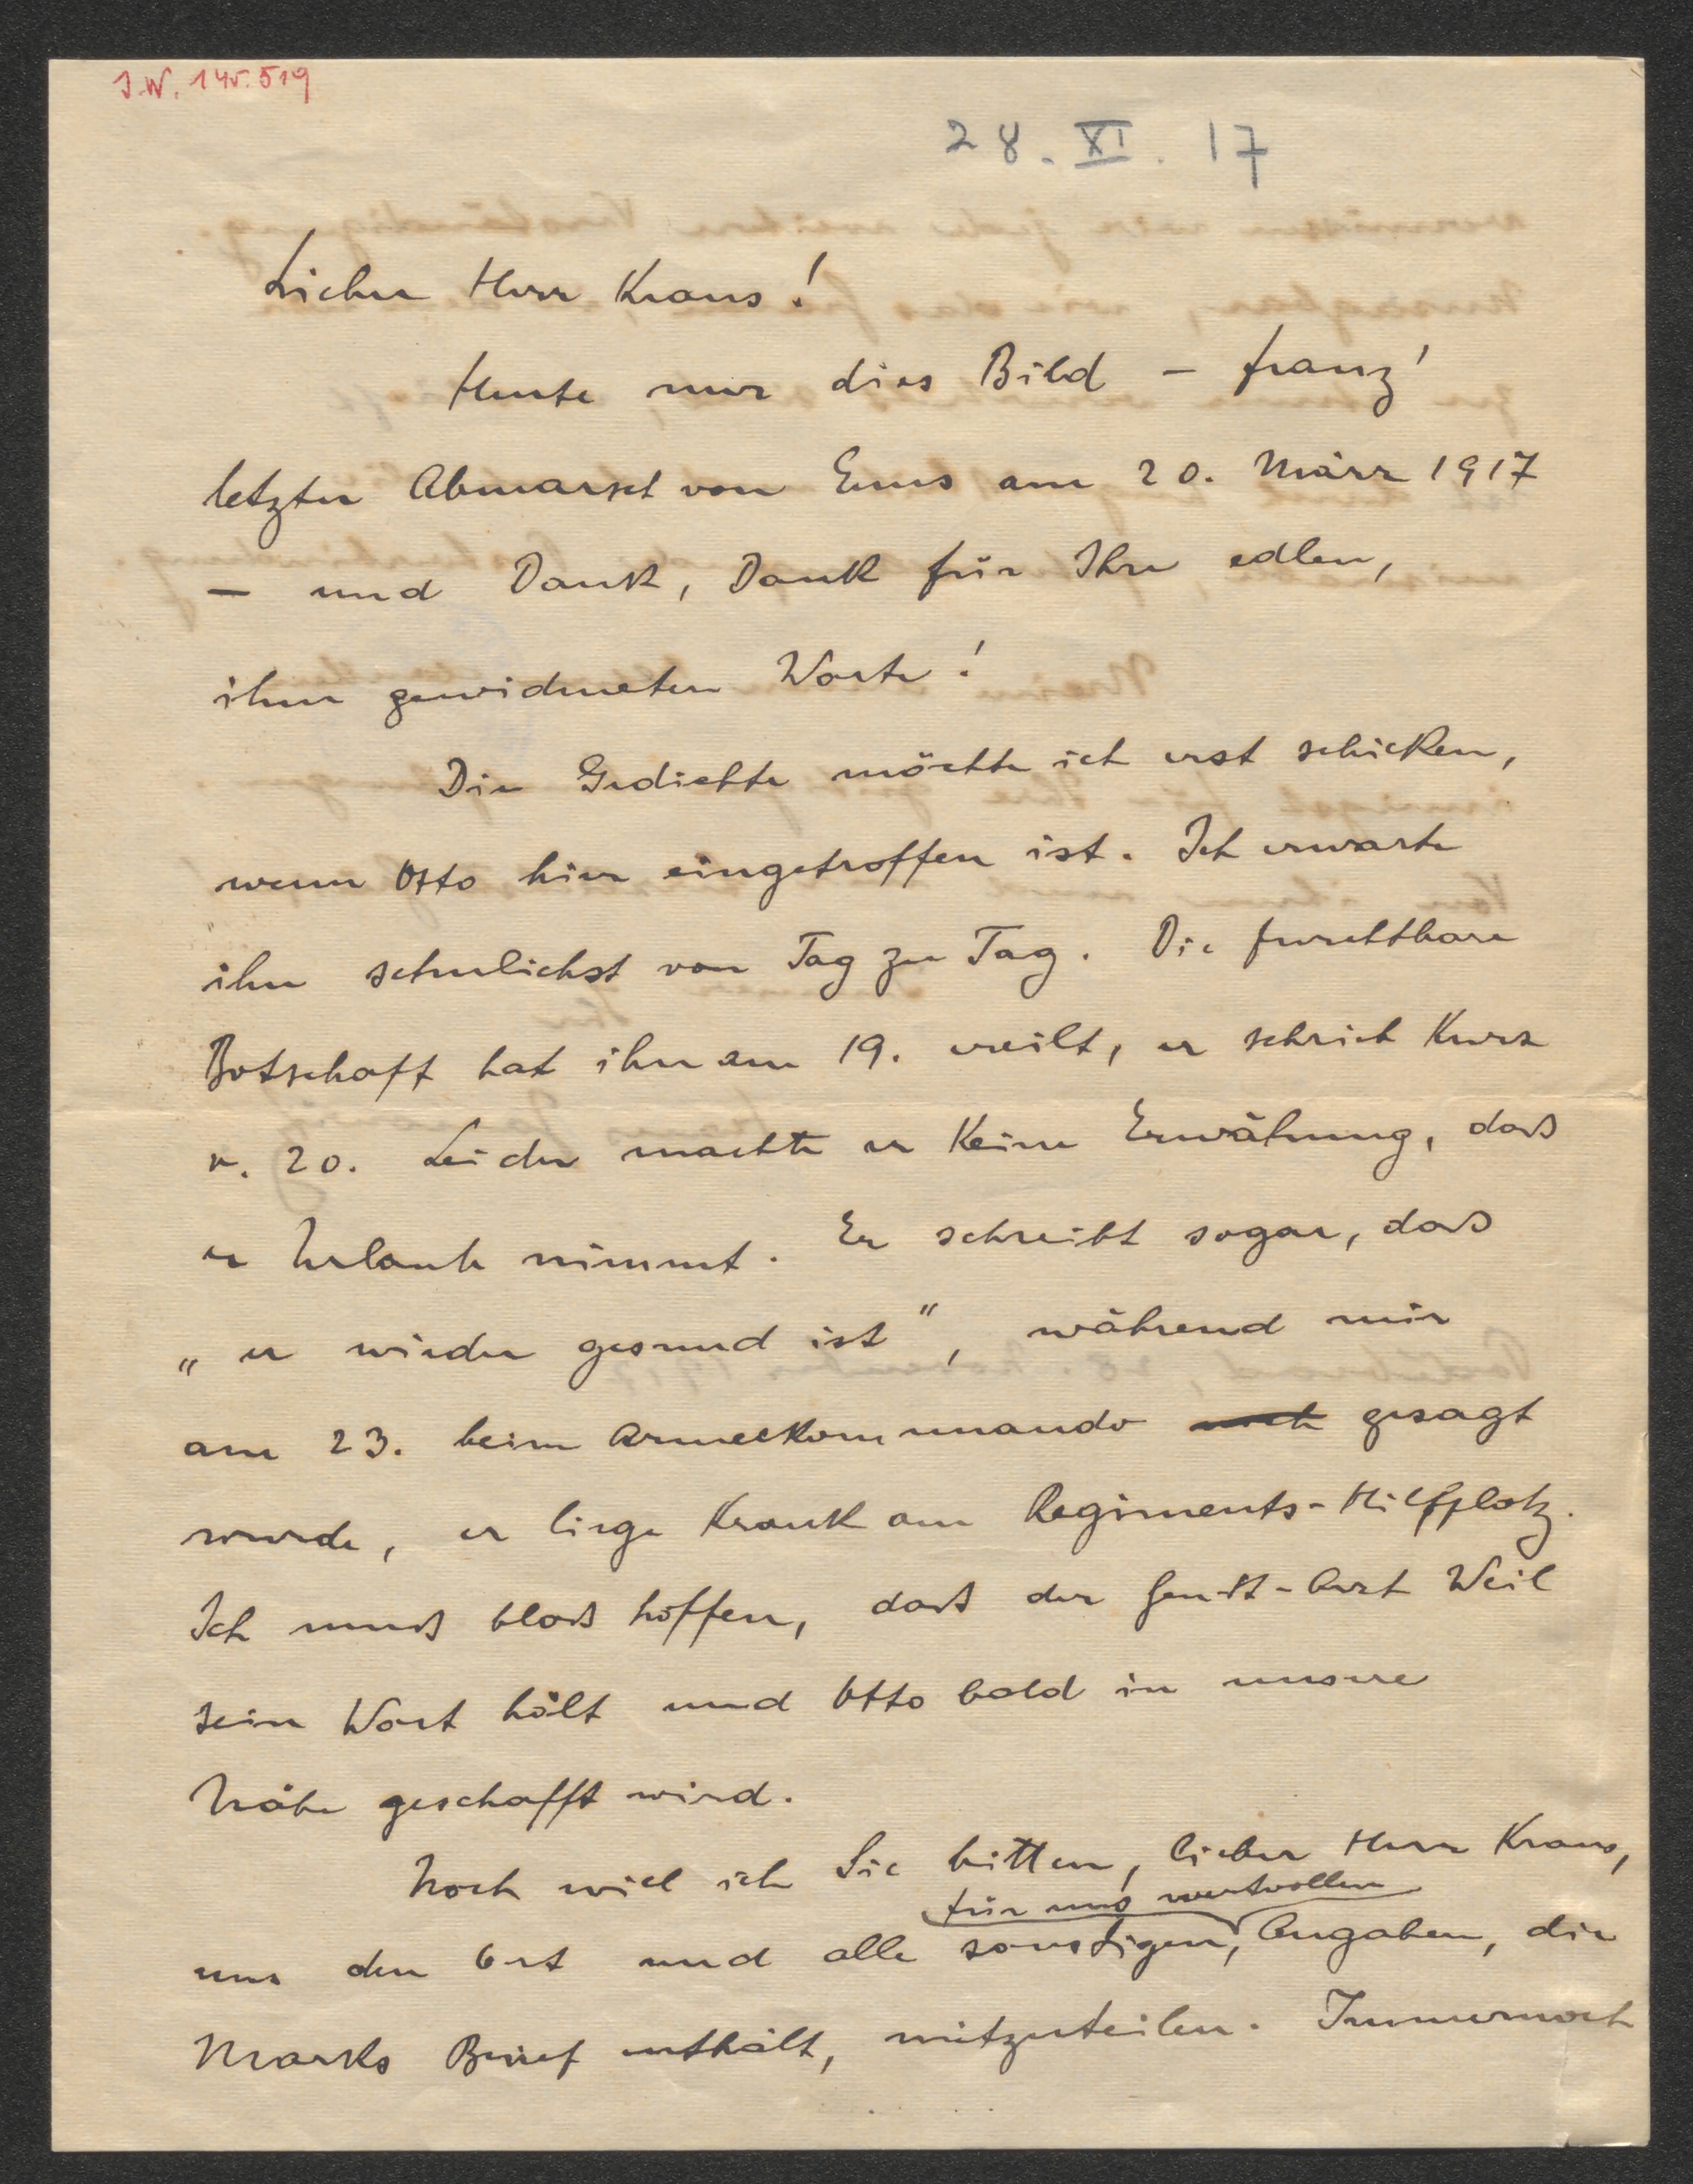 I.N. 145.519
28. XI. 17
Lieber Herr Kraus!
Heute nur dies Bild – Franz'
letzter Abmarsch von Enns am 20. März 1917
– und Dank, Dank für Ihre edlen,
ihm gewidmeten Worte!
Die Gedichte möchte ich erst schicken,
wenn Otto hier eingetroffen ist. Ich erwarte
ihn sehnlichst von Tag zu Tag. Die furchtbare
Botschaft hat ihn am 19. ereilt, er schrieb kurz
v. 20. Leider machte er keine Erwähnung, daß
er Urlaub nimmt. Er schreibt sogar, daß
„er wieder gesund ist", während mir
am 23. beim Armeekommando gesagt
wurde, er liege krank am Regiments-Hilfplatz.
Ich muß bloß hoffen, daß der Arzt Weil
sein Wort hält und Otto bald in unsere
Nähe geschafft wird.
Noch will ich Sie bitten, lieber Herr Kraus,
für uns wertvollen
uns den Ort und alle sonstigen, Angaben, die
Marks Brief enthält, mitzuteilen. Immernoch